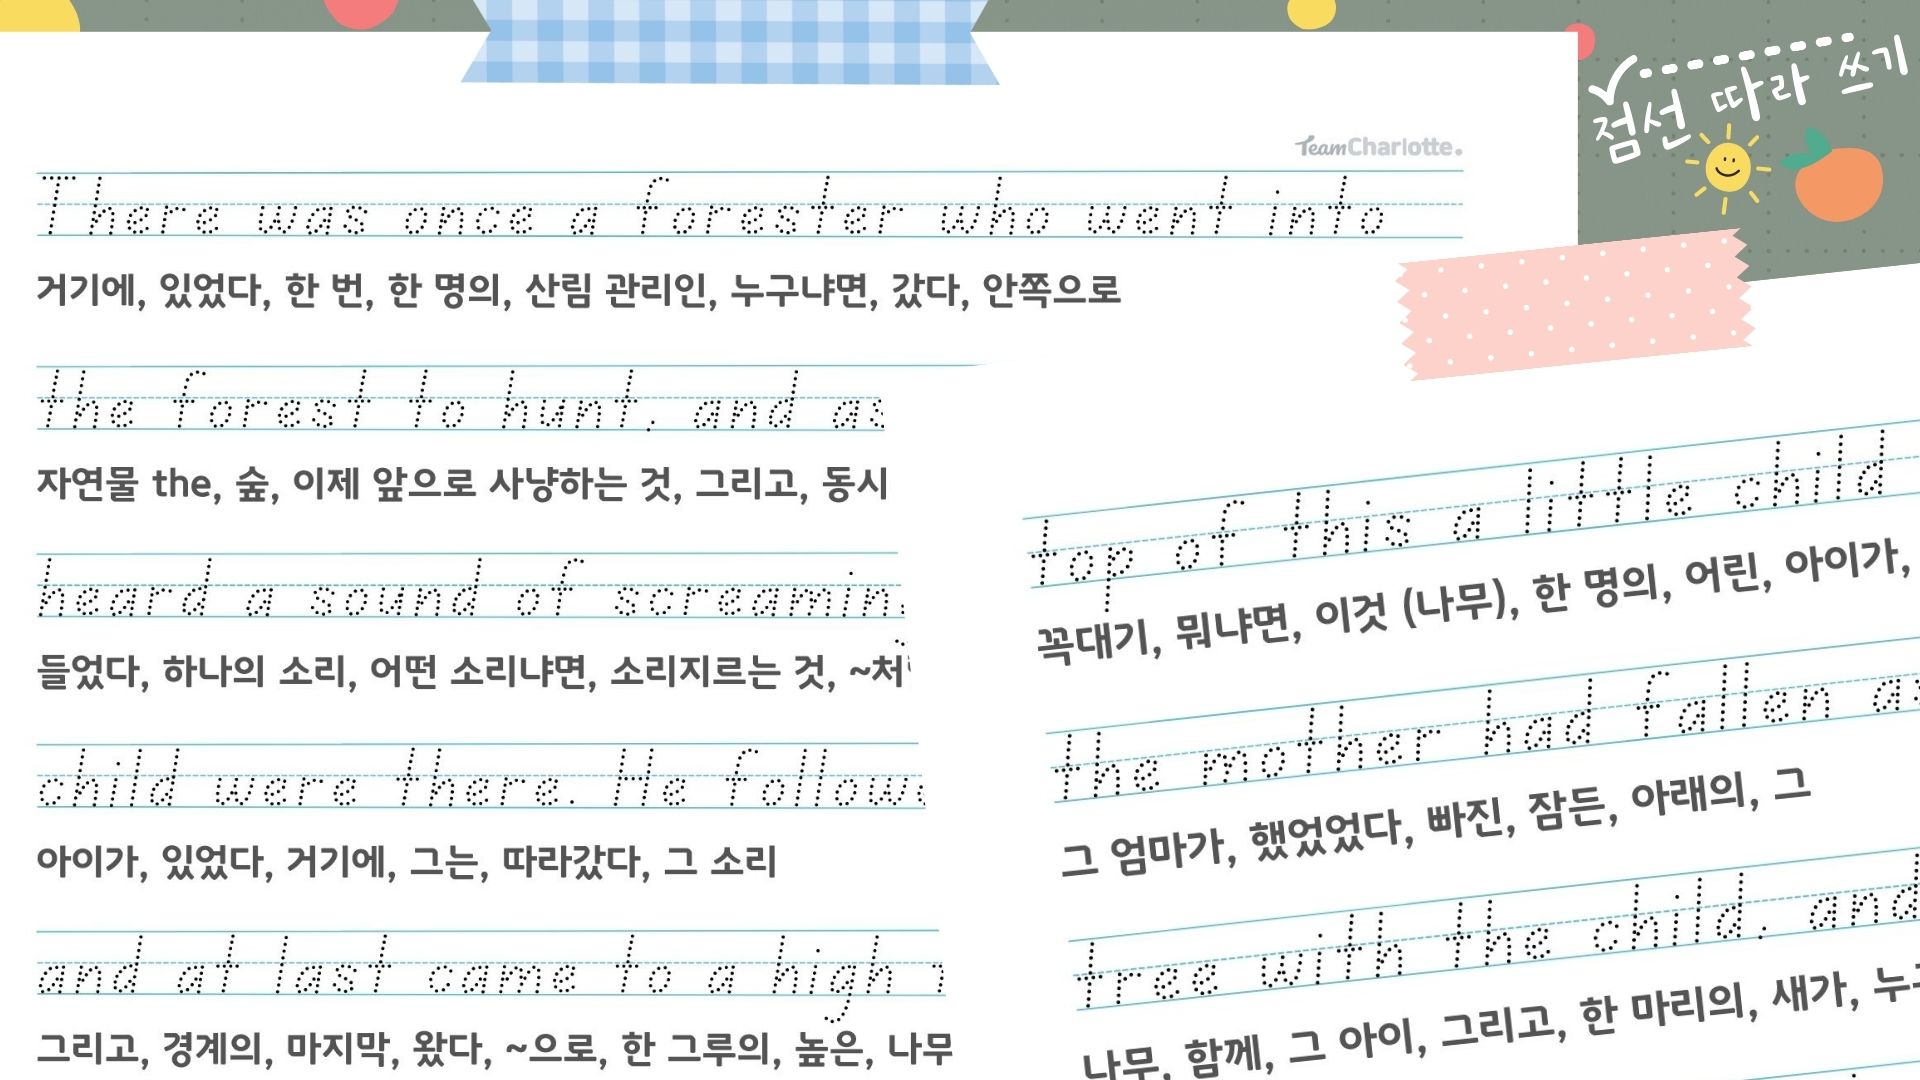 점선 따라 쓰기
TeamCharlotte.
There was once a forester who went into
거기에, 있었다, 한 번, 한 명의, 산림 관리인, 누구냐면, 갔다, 안쪽으로
the forest to hunt, and as
자연물 the, 숲, 이제 앞으로 사냥하는 것, 그리고, 동시
heard a sound of screamin
들었다, 하나의 소리, 어떤 소리냐면, 소리지르는 것,
child were there. He follow
아이가, 있었다, 거기에, 그는, 따라갔다, 그 소리
and at last came to a high
그리고, 경계의, 마지막, 왔다, ~으로, 한 그루의, 높은, 나무
top of this a little child
꼭대기, 뭐냐면, 이것 (나무), 한 명의, 어린, 아이가,
the mother had fallen
그 엄마가, 했었었다, 빠진, 잠든, 아래의, 그
tree with the child, and
나무, 함께, 그 아이, 그리고, 한 마리의, 새가,